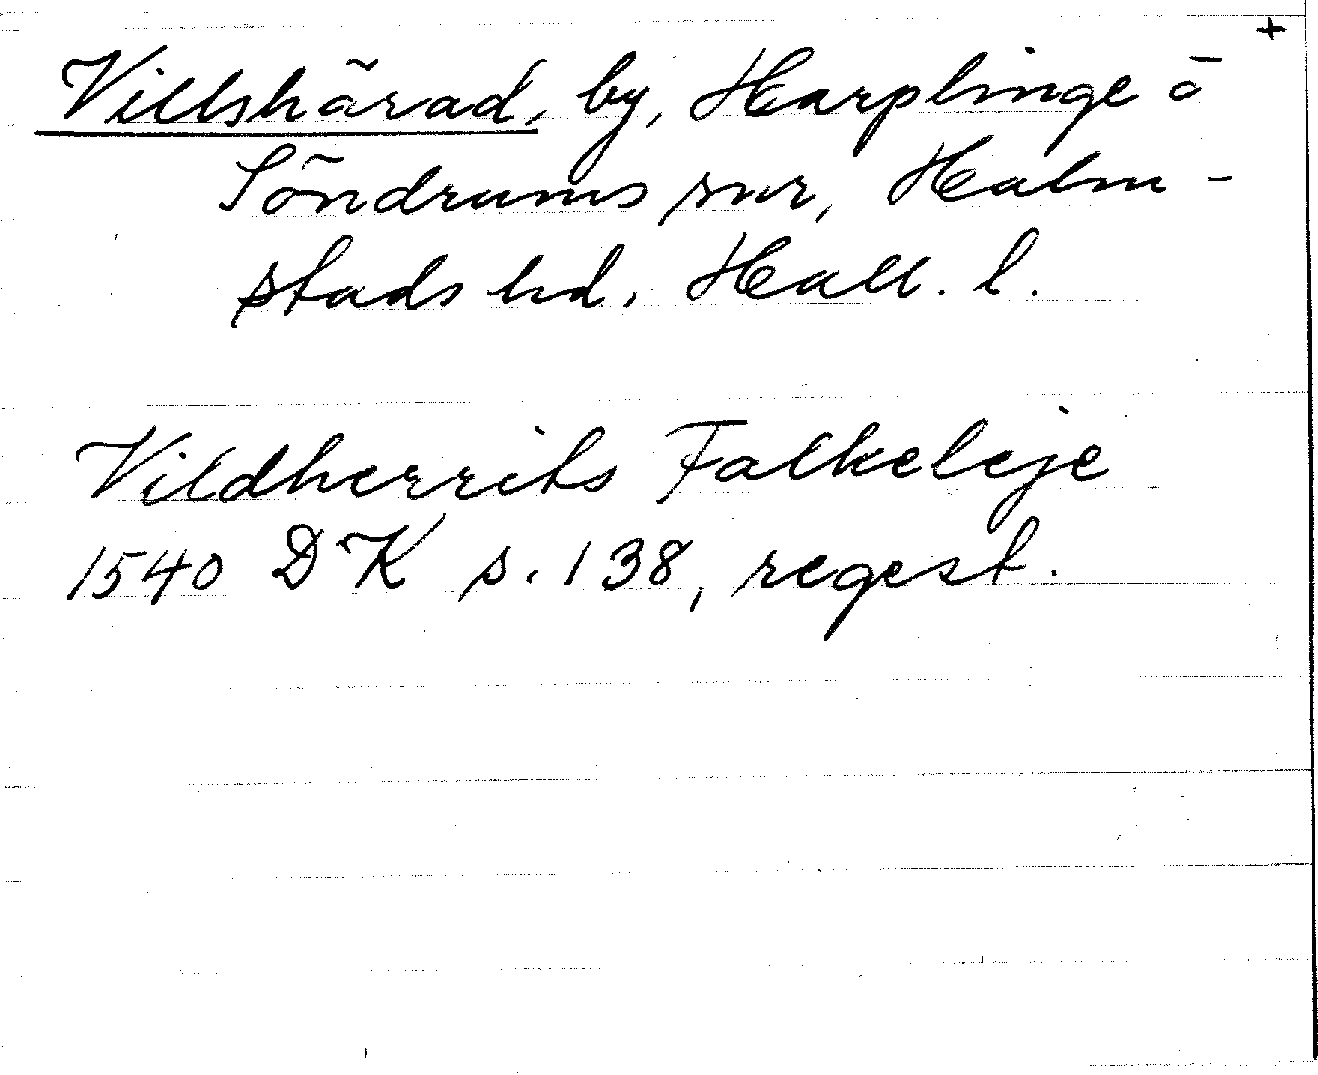 +
Villshärad, by, Harplinge o
Söndrums snr, Halm-
stads hd, Hall. l.
Vildherrits Falkeleje
1540 DK s. 138, regest.